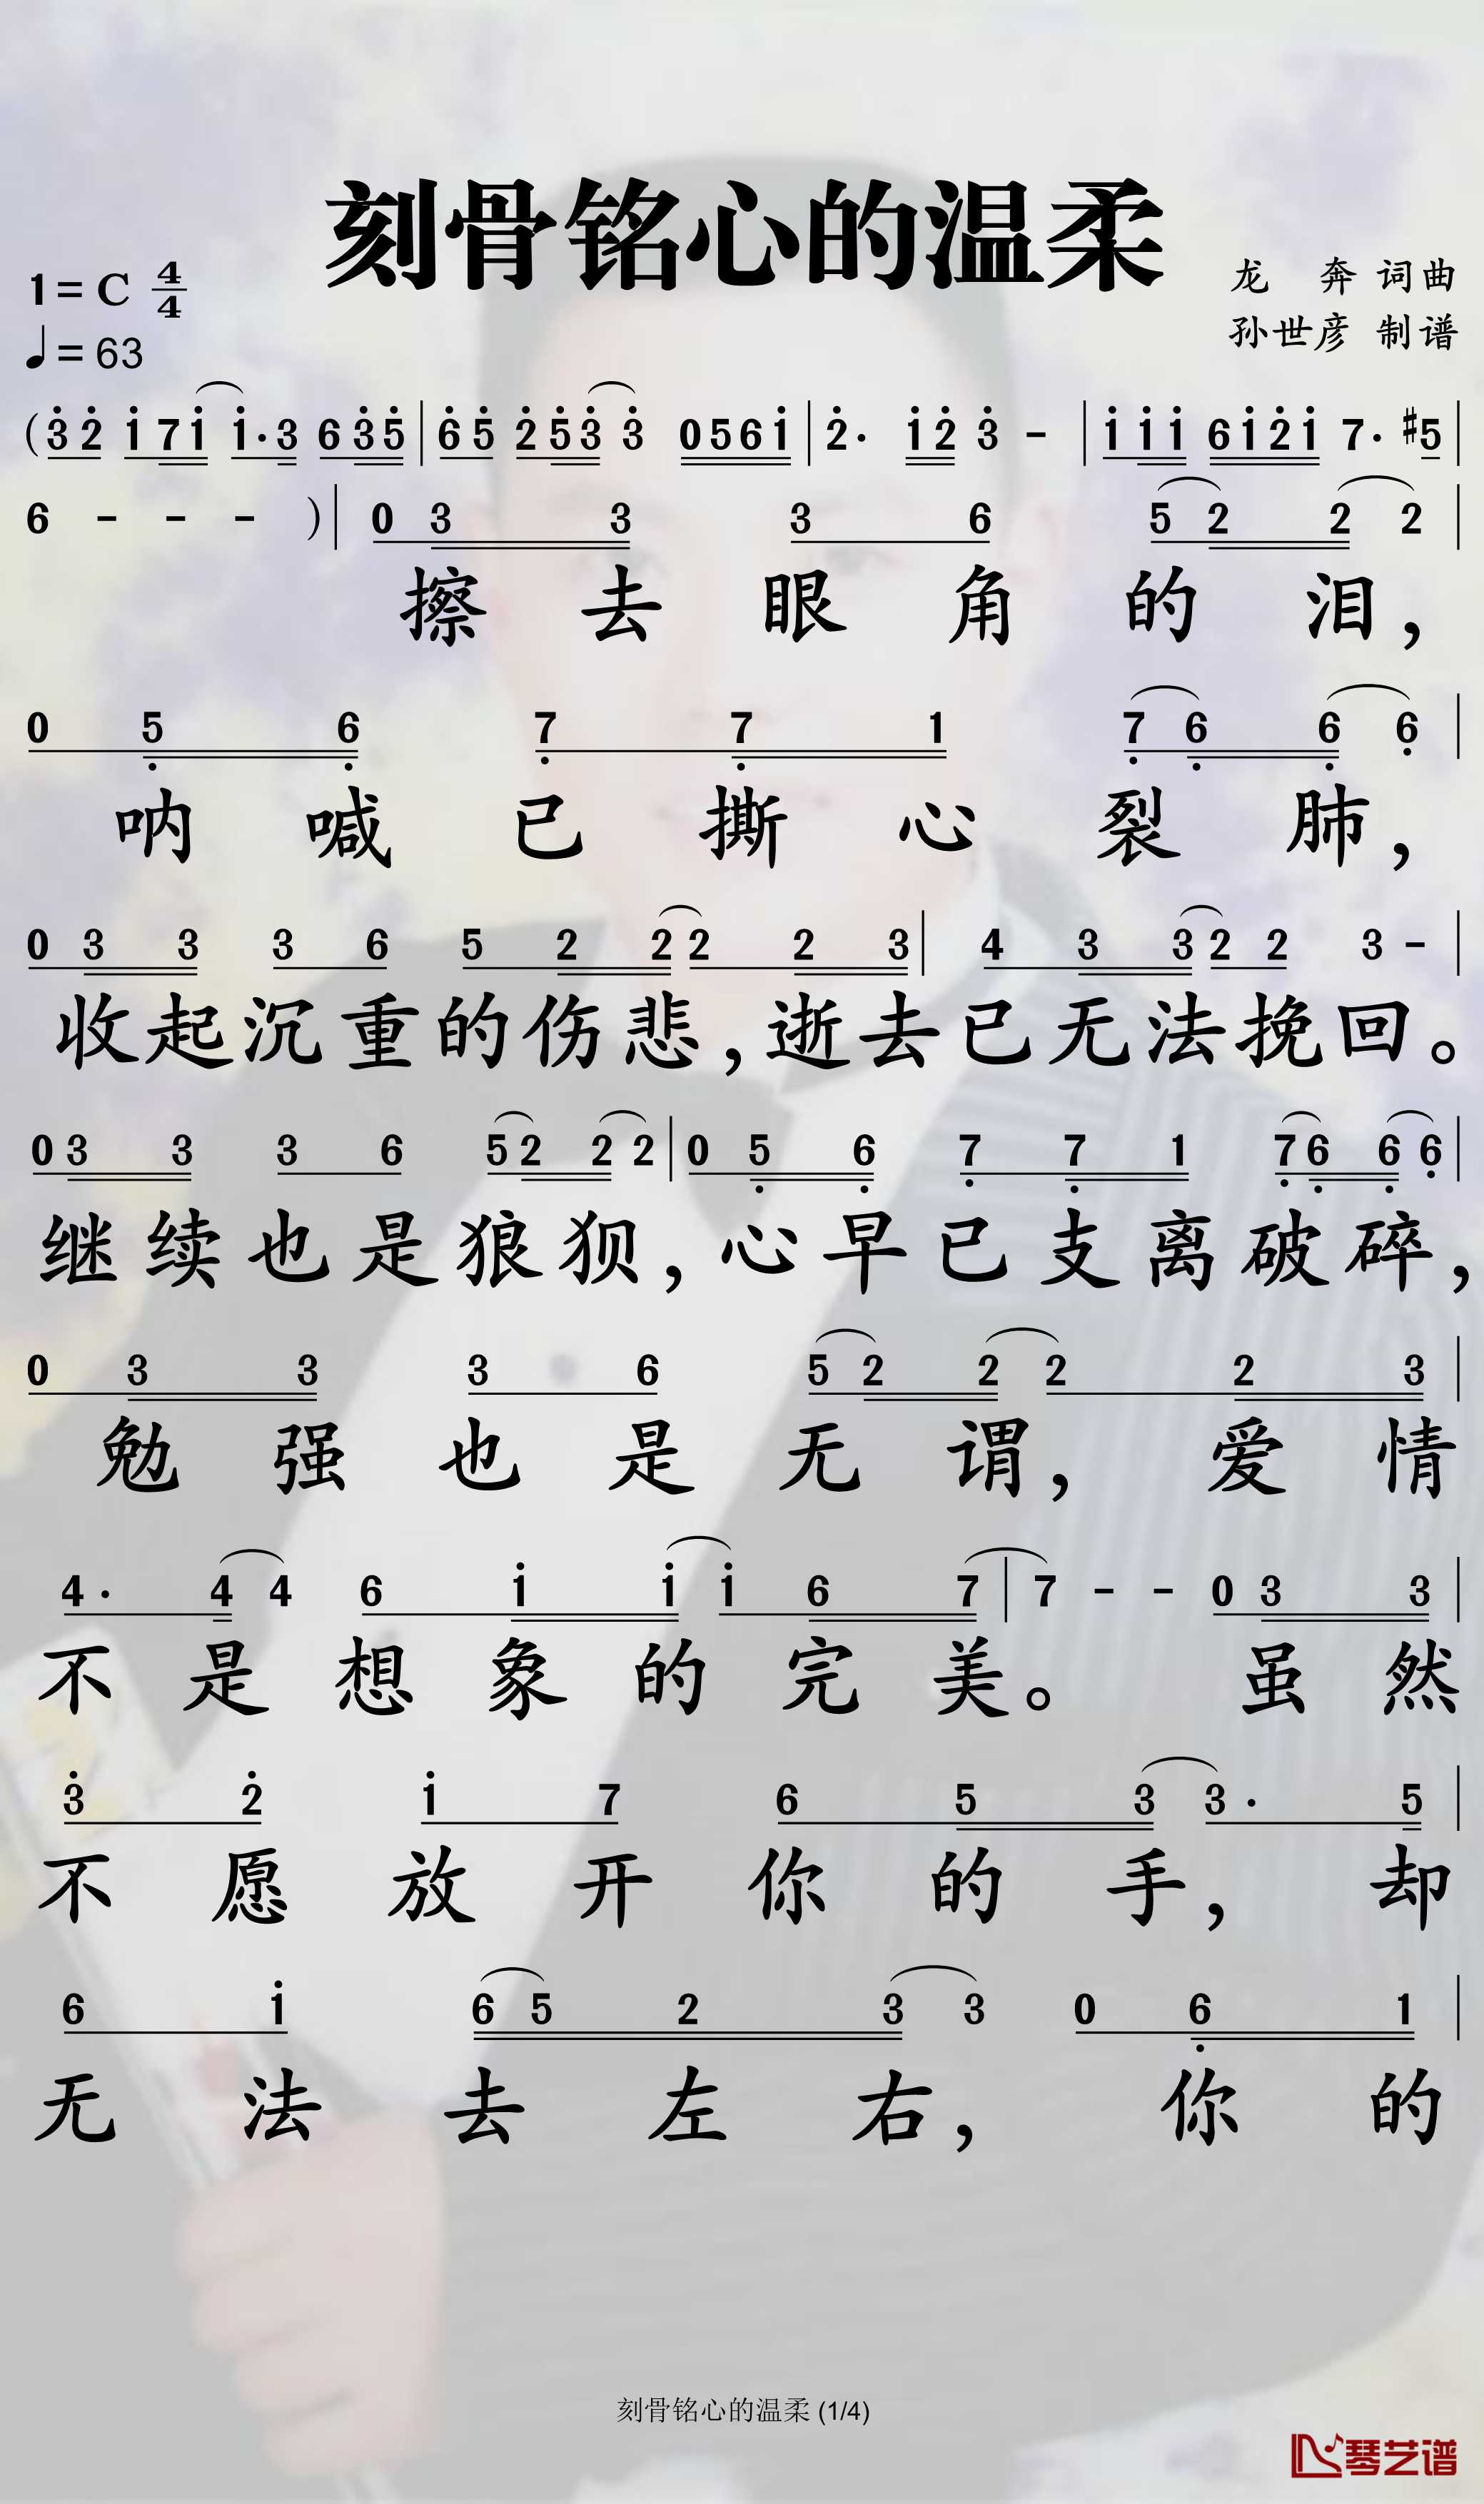 刻骨铭心的温柔
1=C 4/4
♩=63
龙 奔 词曲
孙世彦 制谱
(3 2 1 7 1 1· 3 6 3 5 | 6 5 2 5 3 3 0 5 6 1 | 2· 1 2 3 - | 1 1 1 6 1 2 1 7· #5 |
6 - - - ) | 0 3 3 3 6 5 2 2 2 |
擦去眼角的泪，
0 5 6 7 7 1 7 6 6 6 |
呐喊已撕心裂肺，
0 3 3 3 6 5 2 2 2 2 3 | 4 3 3 2 2 3 - |
收起沉重的伤悲，逝去已无法挽回。
0 3 3 3 6 5 2 2 2 | 0 5 6 7 7 1 7 6 6 6 |
继续也是狼狈，心早已支离破碎，
0 3 3 3 6 5 2 2 2 2 3 |
勉强也是无谓，爱情
4· 4 4 6 1 1 1 6 7 | 7 - - 0 3 3 |
不是想象的完美。虽然
3 2 1 7 6 5 3 3· 5 |
不愿放开你的手，却
6 1 6 5 2 3 3 0 6 1 |
无法去左右，你的
刻骨铭心的温柔 (1/4)
琴艺谱